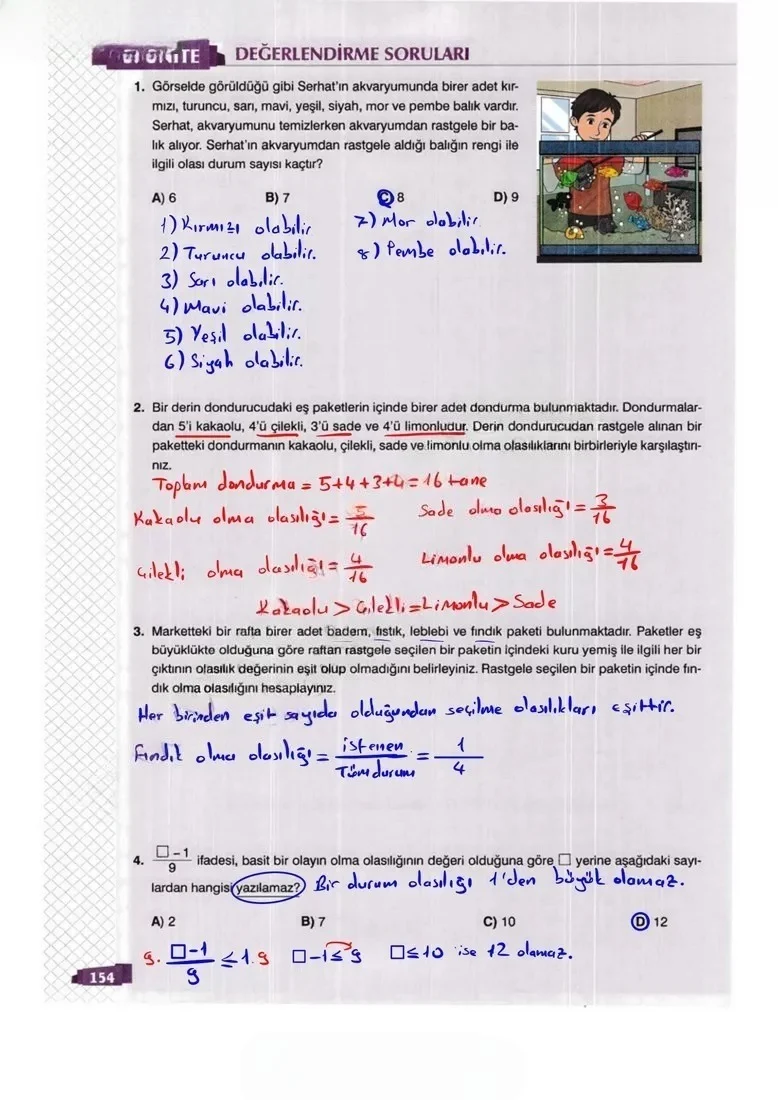 DEĞERLENDİRME SORULARI
1. Görselde görüldüğü gibi Serhat'ın akvaryumunda birer adet kır-
mızı, turuncu, sarı, mavi, yeşil, siyah, mor ve pembe balık vardır.
Serhat, akvaryumunu temizlerken akvaryumdan rastgele bir ba-
lık alıyor. Serhat'ın akvaryumdan rastgele aldığı balığın rengi ile
ilgili olası durum sayısı kaçtır?
A) 6 B) 7 C) 8 D) 9
1) Kırmızı olabilir 7) Mor olabilir
2) Turuncu olabilir. 8) Pembe olabilir.
3) Sarı olabilir.
4) Mavi olabilir.
5) Yeşil olabilir.
6) Siyah olabilir.
2. Bir derin dondurucudaki eş paketlerin içinde birer adet dondurma bulunmaktadır. Dondurmalar-
dan 5'i kakaolu, 4'ü çilekli, 3'ü sade ve 4'ü limonludur. Derin dondurucudan rastgele alınan bir
paketteki dondurmanın kakaolu, çilekli, sade ve limonlu olma olasılıklarını birbirleriyle karşılaştırı-
nız.
Toplam dondurma = 5+4+3+4=16 tane
Kakaolu olma olasılığı = 5/16 Sade olma olasılığı = 3/16
Çilekli olma olasılığı = 4/16 Limonlu olma olasılığı = 4/16
Kakaolu > Çilekli = Limonlu > Sade
3. Marketteki bir rafta birer adet badem, fıstık, leblebi ve fındık paketi bulunmaktadır. Paketler eş
büyüklükte olduğuna göre raftan rastgele seçilen bir paketin içindeki kuru yemiş ile ilgili her bir
çıktının olasılık değerinin eşit olup olmadığını belirleyiniz. Rastgele seçilen bir paketin içinde fın-
dık olma olasılığını hesaplayınız.
Her birinden eşit sayıda olduğundan seçilme olasılıkları eşittir.
Fındık olma olasılığı = istenen / Tüm durum = 1/4
4. □-1/9 ifadesi, basit bir olayın olma olasılığının değeri olduğuna göre □ yerine aşağıdaki sayı-
lardan hangisi yazılamaz? Bir durum olasılığı 1'den büyük olamaz.
A) 2 B) 7 C) 10 D) 12
9. □-1/9 ≤ 1.9 □-1≤9 □≤10 ise 12 olamaz.
154